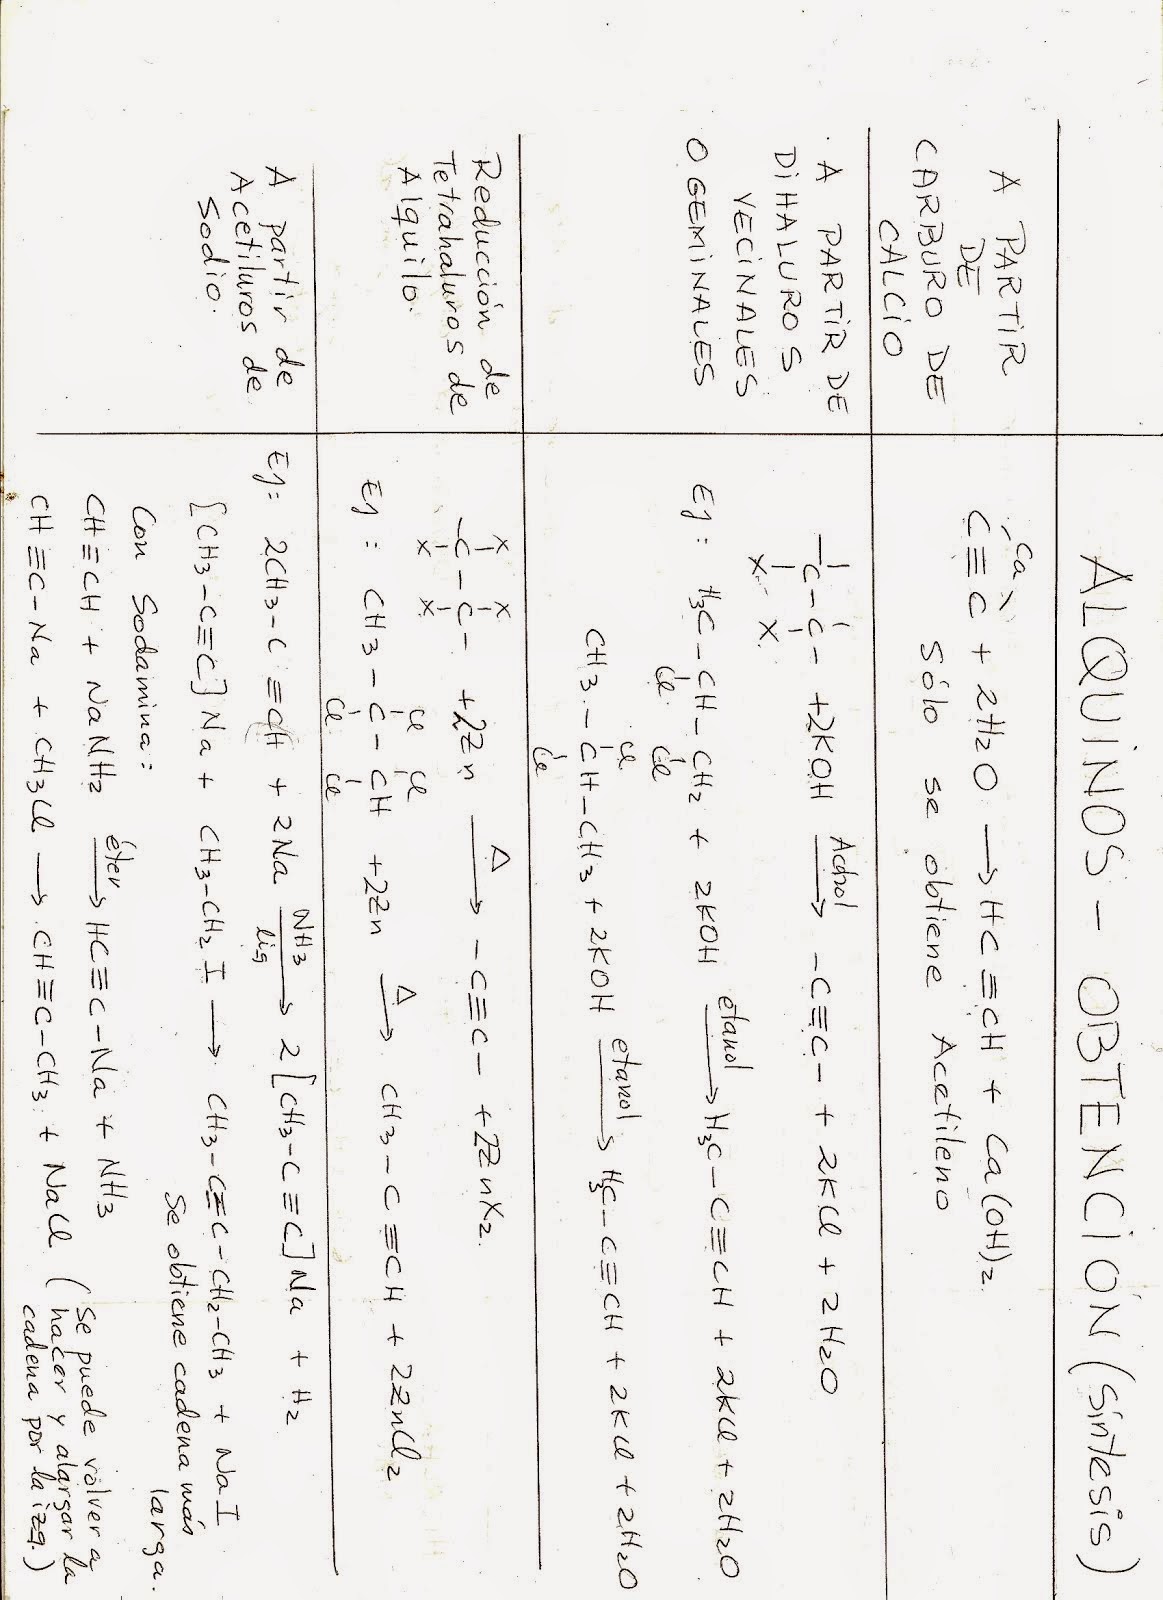 ALQUINOS - OBTENCIÓN (síntesis)
A PARTIR
DE
CARBURO DE
CALCIO
Ca
C≡C + 2H2O → HC≡CH + Ca(OH)2
Sólo se obtiene Acetileno
· A PARTIR DE
DIHALUROS
VECINALES
O GEMINALES
-C-C- + 2KOH Achol → -C≡C- + 2KCl + 2H2O
X X
Ej: H3C-CH-CH2 + 2KOH etanol → H3C-C≡CH + 2KCl + 2H2O
Cl Cl
Cl
CH3-CH-CH3 + 2KOH etanol → H3C-C≡CH + 2KCl + 2H2O
Cl
Reducción de
Tetrahaluros de
Alquilo.
X X
-C-C- + 2Zn △ → -C≡C- + 2ZnX2.
X X
Cl Cl
Ej: CH3-C-CH + 2Zn △ → CH3-C≡CH + 2ZnCl2
Cl Cl
A partir de
Acetiluros de
Sodio.
Ej: 2CH3-C≡CH + 2Na NH3 liq → 2[CH3-C≡C]Na + H2
[CH3-C≡C]Na + CH3-CH2I → CH3-C≡C-CH2-CH3 + NaI
Se obtiene cadena más
larga.
Con Sodamina:
CH≡CH + NaNH2 éter → HC≡C-Na + NH3
CH≡C-Na + CH3Cl → CH≡C-CH3 + NaCl (Se puede volver a
hacer y alargar la
cadena por la izq.)